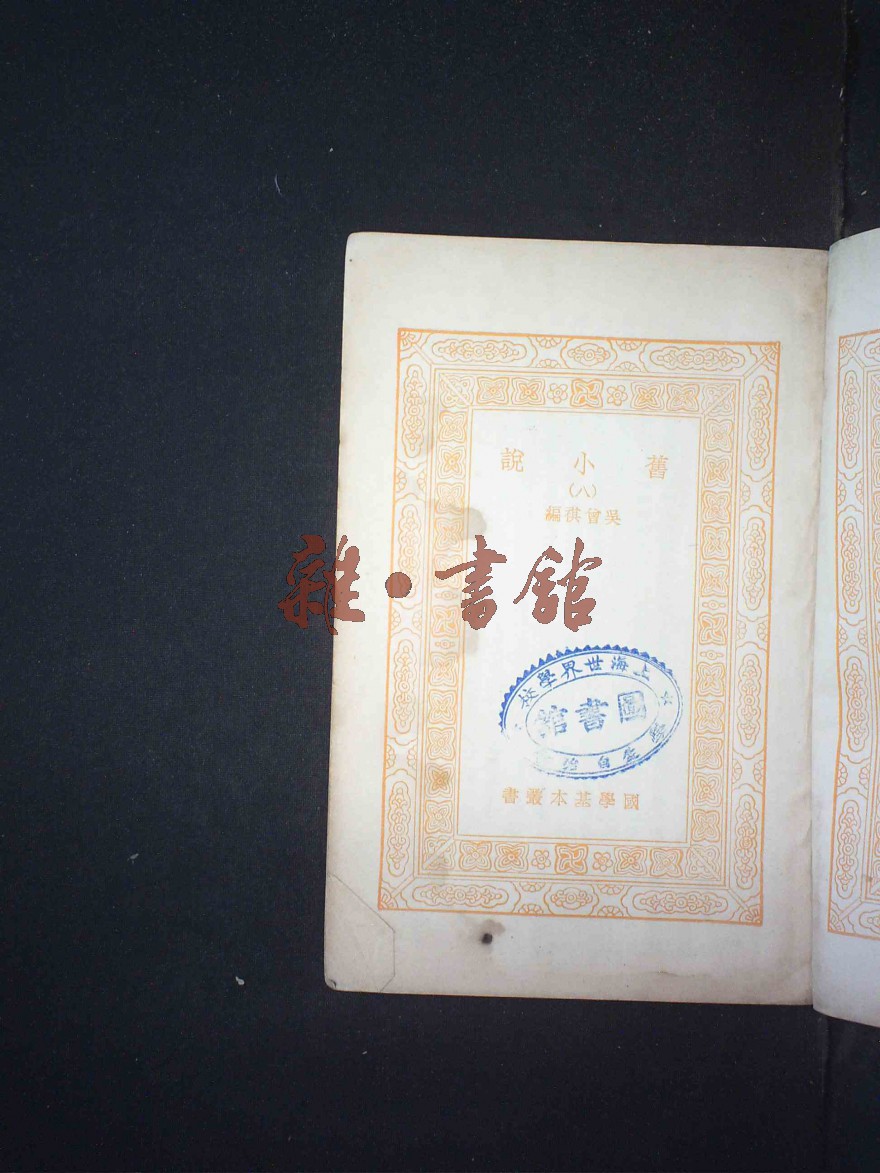 舊小說
(八)
吳曾祺編
雜·書館
上海世界學校
圖書館
學生自治
國學基本叢書